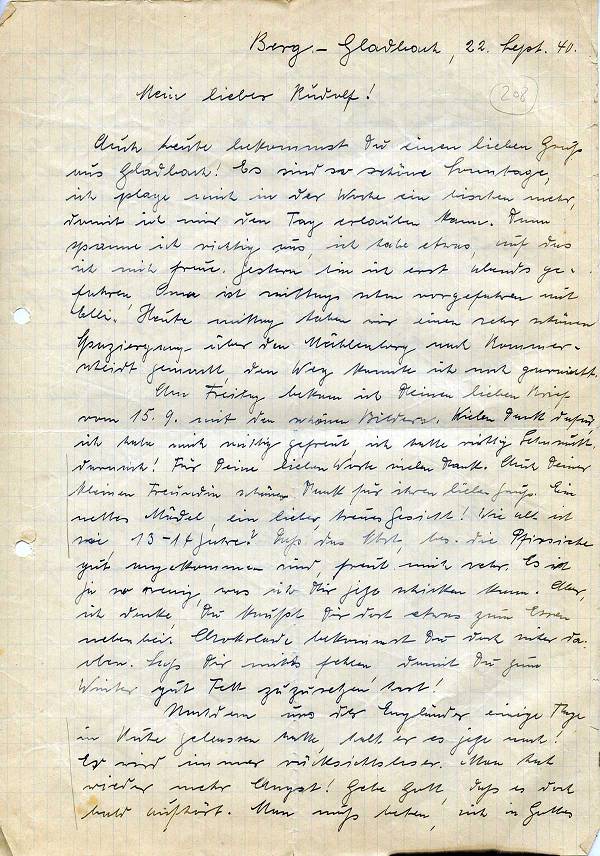 Berg.-Gladbach, 22. Sept. 40.
208
Mein lieber Rudolf!
Auch heute bekommst Du einen lieben Gruß
aus Gladbach! Es sind so schöne Sonntage,
ich plage mich in der Woche ein bischen mehr,
damit ich mir den Tag erlauben kann. Dann
spanne ich richtig aus, ich habe etwas, auf das
ich mich freue. Gestern bin ich erst abends ge-
fahren, Oma ist mittags schon vorgefahren mit
Elli. Heute mittag haben wir einen sehr schönen
Spaziergang über den Mühlenberg nach Rommer-
scheidt gemacht, den Weg kannte ich noch gar nicht.
Am Freitag bekam ich Deinen lieben Brief
vom 15.9. mit den schönen Bildern. Vielen Dank dafür,
ich habe mich mächtig gefreut, ich hatte richtig Sehnsucht
darnach! Für Deine lieben Worte vielen Dank. Auch Deiner
kleinen Freundin schönen Dank für ihren lieben Gruß. Ein
nettes Mädel, ein liebes, treues Gesicht! Wie alt ist
sie 13-14 Jahre? Daß das Obst, bes. die Pfirsiche
gut angekommen sind, freut mich sehr. Es ist
ja so wenig, was ich Dir jetzt schicken kann. Aber,
ich denke, Du kaufst Dir dort etwas zum Essen
nebenbei. Chokolade bekommst Du doch sicher da-
oben. Laß Dir nichts fehlen damit Du zum
Winter gut Fett zuzusetzen hast!
Nachdem uns der Engländer einige Tage
in Ruhe gelassen hatte, holt er es jetzt nach!
Er wird immer rücksichtsloser. Man hat
wieder mehr Angst! Gebe Gott, daß es doch
bald aufhört. Man muß beten, sich in Gottes